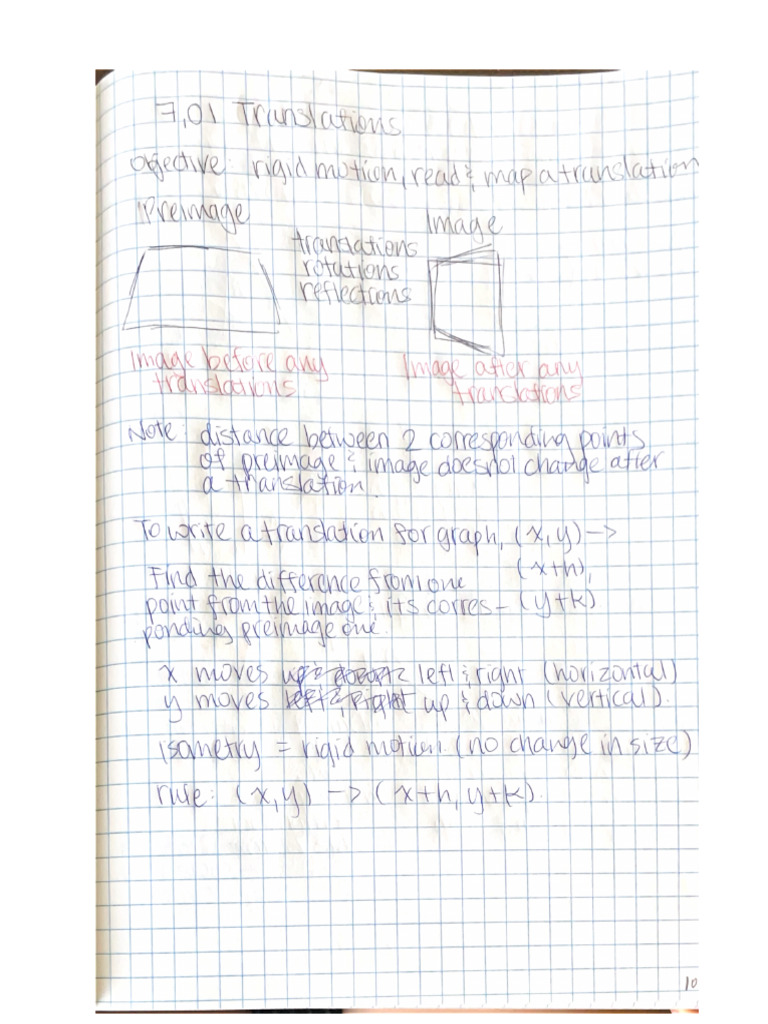 7,01 Translations
Objective: rigid motion, read & map a translation
Preimage
Image
translations
rotations
reflections
Image before any
translations
Image after any
translations
Note: distance between 2 corresponding points
of preimage & image does not change after
a translation.
To write a translation for graph, (x,y) ->
(x+h),
Find the difference from one
point from the image & its corres- (y+k)
ponding preimage one.
x moves left & right (horizontal)
y moves left & right up & down (vertical).
isometry = rigid motion (no change in size)
rule: (x,y) -> (x+h, y+k).
10